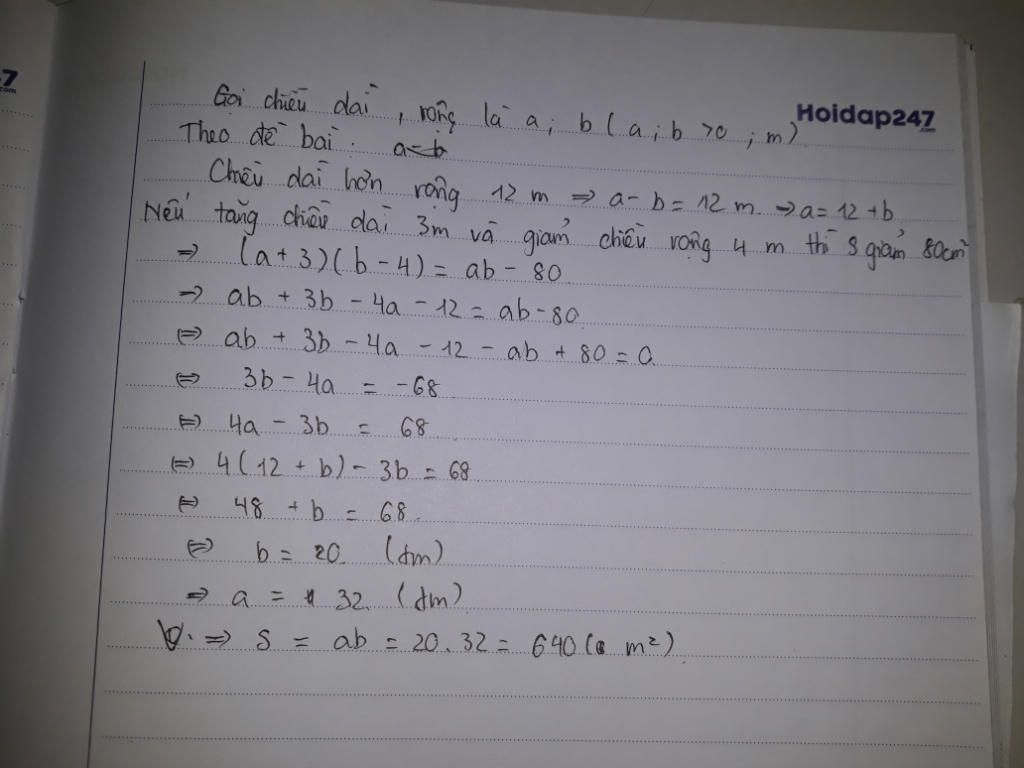 7
.com
Hoidap247
.com
Gọi chiều dài, rộng là a; b (a; b >0; m)
Theo đề bài: a=b
Chiều dài hơn rộng 12 m ⇒ a - b = 12 m. → a = 12 + b
Nếu tăng chiều dài 3m và giảm chiều rộng 4 m thì S giảm 80cm²
⇒ (a + 3)(b - 4) = ab - 80
⇒ ab + 3b - 4a - 12 = ab - 80
⇔ ab + 3b - 4a - 12 - ab + 80 = 0
⇔ 3b - 4a = -68
⇔ 4a - 3b = 68
⇔ 4(12 + b) - 3b = 68
⇔ 48 + b = 68
⇔ b = 20 (m)
⇒ a = 32 (m)
⇒ S = ab = 20.32 = 640 (m²)